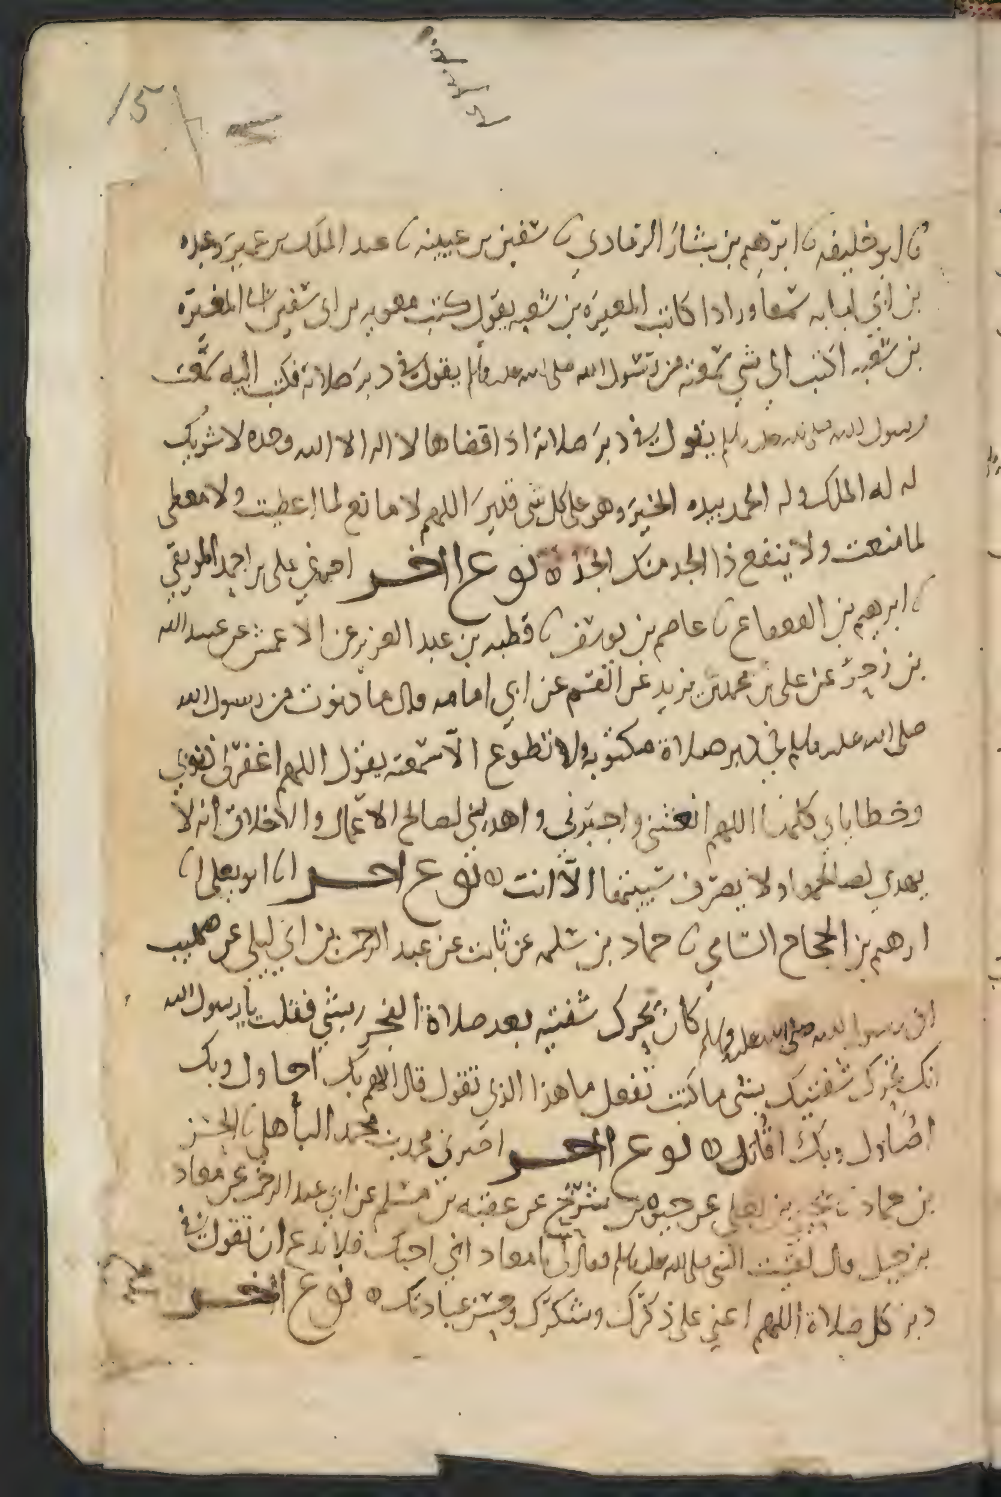 15
ثا ابو خليفه ثا ابرهيم بن بشار الرمادي ثا سفين بن عيينه ثا عبد الملك بن عمير وعبده
بن ابي لبابه سمعا ورادا كاتب المغيرة بن شعبه يقول كتب معويه بن ابي سفين الى المغيرة
بن شعبه اكتب الي بشي سمعته من رسول الله صلى الله عليه وسلم يقول في دبر صلاته فكتب اليه سمعت
رسول الله صلى الله عليه وسلم يقول في دبر صلاته اذا قضاها لا اله الا الله وحده لا شريك
له له الملك وله الحمد بيده الخير وهو على كل شي قدير اللهم لا مانع لما اعطيت ولا معطي
لما منعت ولا ينفع ذا الجد منك الجد نوع اخر اخبرني علي بن احمد
ثا ابرهيم بن القعقاع ثا عاصم بن يوسف ثا قطبه بن عبد العزيز عن الاعمش عن عبيد الله
بن زحر عن علي بن يزيد عن القسم عن ابي امامه قال ما دنوت من رسول الله
صلى الله عليه وسلم في دبر صلاة مكتوبه ولا تطوع الا سمعته يقول اللهم اغفر لي ذنوبي
وخطاياي كلها اللهم انعشني واجبرني واهدني لصالح الاعمال والاخلاق انه لا
يهدي لصالحها ولا يصرف سيئها الا انت نوع اخر انا ابو يعلى ثا
ابرهيم بن الحجاج السامي ثا حماد بن سلمه عن ثابت عن عبد الرحمن بن ابي ليلى عن صهيب
ان رسول الله صلى الله عليه وسلم كان يحرك شفتيه بعد صلاة الفجر بشي فقلت يا رسول الله
انك تحرك شفتيك بشي ما كنت تفعل ما هذا الذي تقول قال اللهم بك احاول وبك
اصاول وبك اقاتل نوع اخر اخبرني محمد بن محمد الباهلي ثا الحسن
بن حماد ثا يحيى بن يعلى عن حيوه بن شريح عن عقبه بن مسلم عن ابي عبد الرحمن عن معاد
بن جبل قال لقيت النبي صلى الله عليه وسلم فقال لي يا معاد اني احبك فلا تدع ان تقول في
دبر كل صلاة اللهم اعني على ذكرك وشكرك وحسن عبادتك نوع اخر